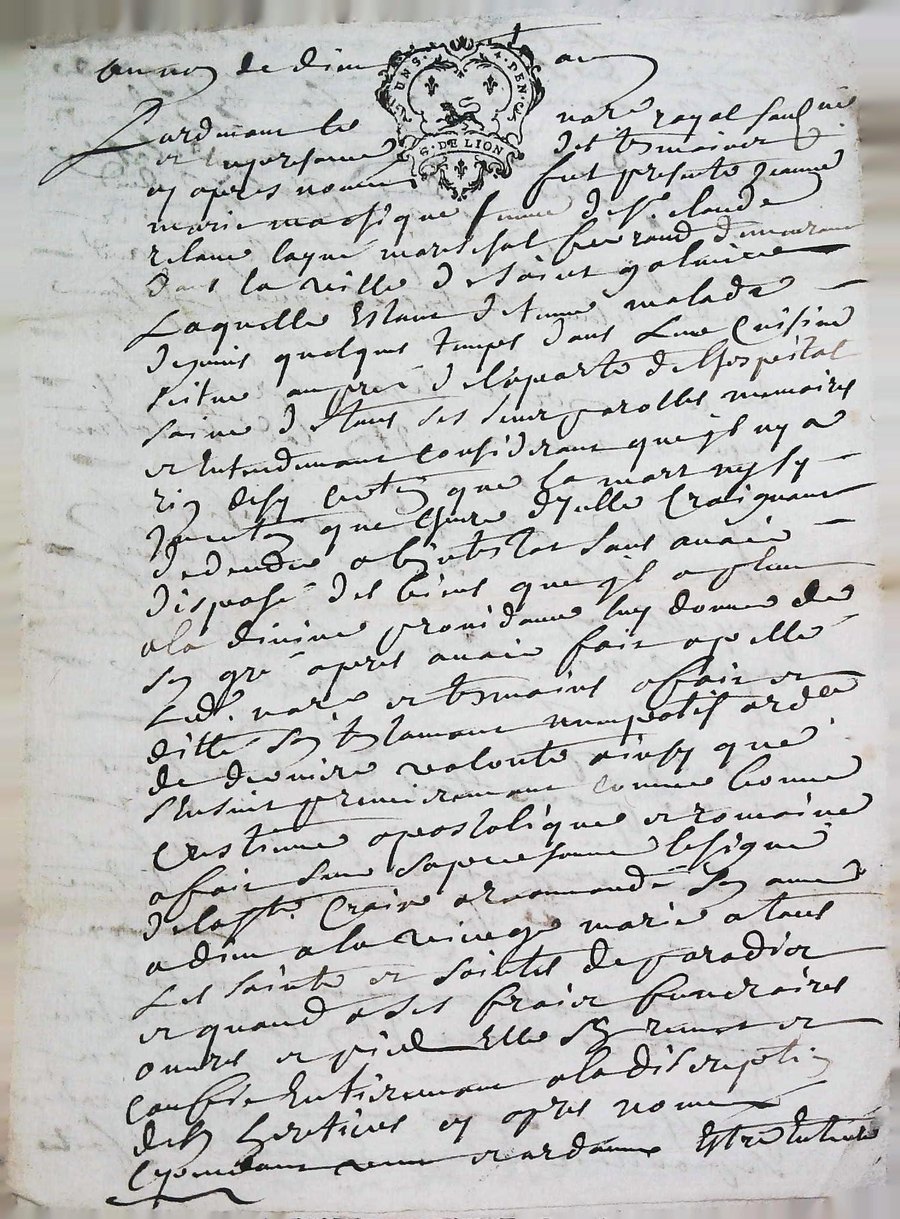 au nom de dieu
UN S. 4. DEN.
G. DE LION
Pardevant le no.re royal soubsigné
et en presence des tesmoins
cy apres nommes fut presente Jeanne
marie femme de S.r claude
mareschal ferrand demeurant
dans la ville de saint galmier
Laquelle Estant detenue malade
depuis quelque temps dans Une Cuisine
scitue aupres de la porte de l'hospital
saine de tous ses sens parolles memoires
et Entendement considerant que jl ny a
rien de sy certin que la mort ny sy
jncertin que l'heure dycelle Craignant
de deceder abintestat sans avoir
disposé des biens que jl a pleu
a la divine providance luy donner de
son gré apres avoir fait apelle
Led. no.re et tesmoins a fait et
ditté son testament nuncupatif ordre
de derniere volonte ainsy que
s'Ensuit premierement comme bonne
Crestienne apostolique et romaine
a fait sur sa personne le signe
de la s.te Croix recommandé son ame
a dieu a la vierge marie a tous
Les saints et saintes de paradis
et quand a ses frais funeraires
œuvres pies Elle s'en remet et
confie Entierement a la discreption
de ses heretiers cy apres nommes
Cependant veut et ordonne Estre Enterée